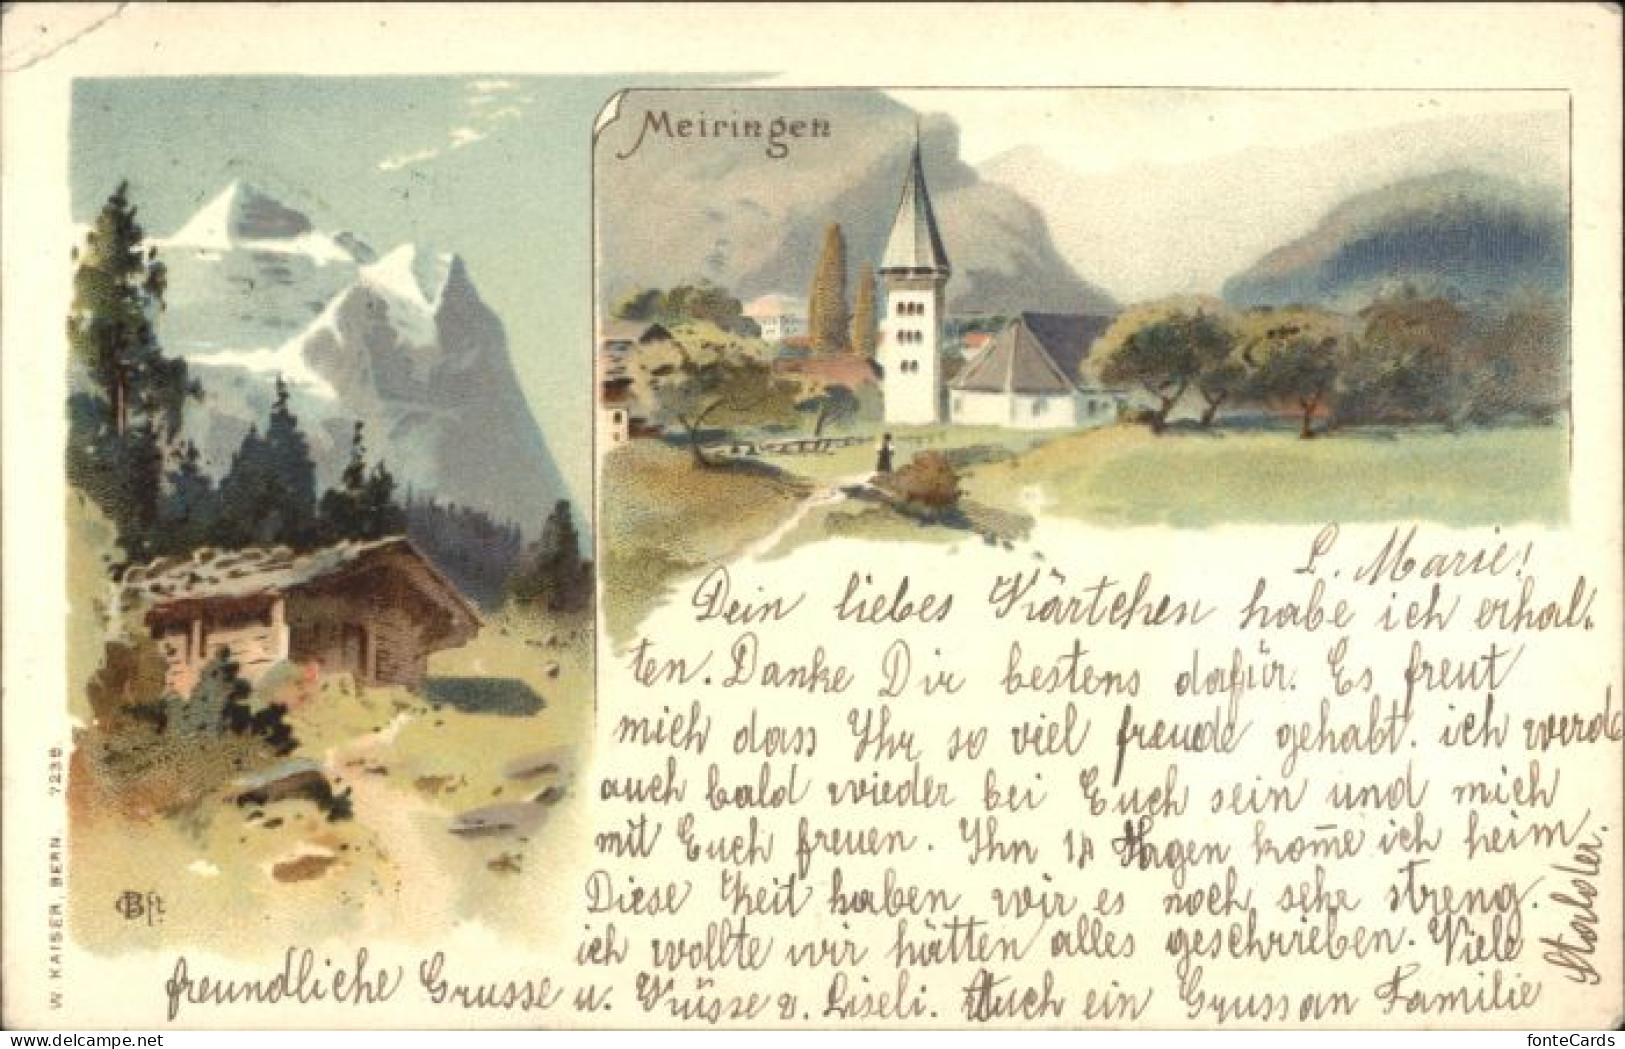 Meiringen
L. Marie!
Dein liebes Kärtchen habe ich erhal-
ten. Danke Dir bestens dafür. Es freut
mich dass Ihr so viel freude gehabt. ich werde
auch bald wieder bei Euch sein und mich
mit Euch freuen. Ihn 14 Tagen kom̄e ich heim.
Diese Zeit haben wir es noch sehr streng.
ich wollte wir hätten alles geschrieben. Viele
freundliche Grusse u. Küsse v. Liseli. Auch ein Gruss an Familie
Stalder.
W. KAISER, BERN 7239